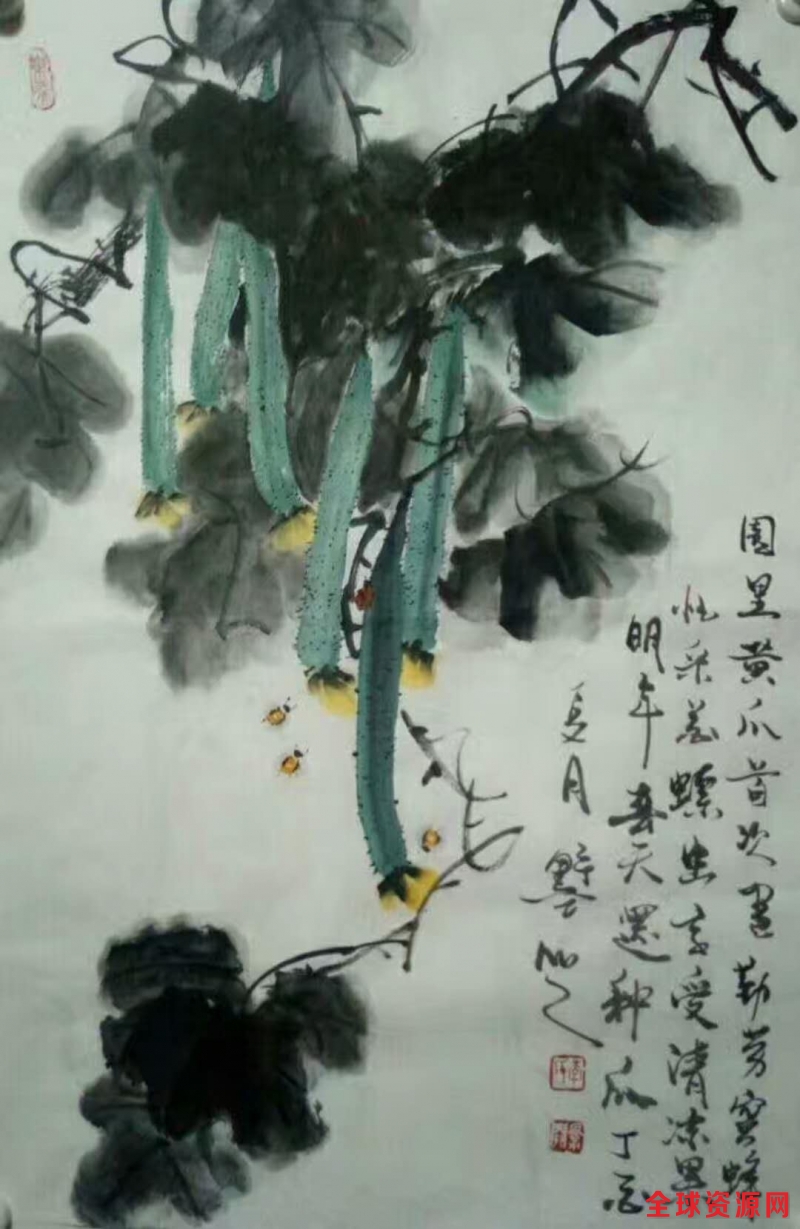 園里黄瓜首次画勤劳蜜蜂
忙采花螺出享受清凉
明年春天還种瓜丁酉
夏月
全球资源网